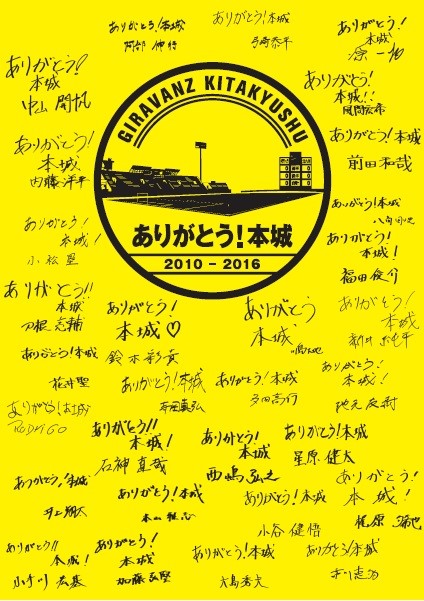 ありがとう!本城
阿部
ありがとう!本城
ありがとう!
本城
原 一樹
ありがとう!
本城
中山 開帆
ありがとう!
本城!!
風間宏希
GIRAVANZ KITAKYUSHU
ありがとう!
本城
内藤洋平
ありがとう!本城
前田和哉
ありがとう!本城
2010 - 2016
ありがとう!
本城!
小松 塁
ありがとう!本城
ありがとう!
本城!
福田俊介
ありがとう!!
本城
刀根 亮輔
ありがとう!
本城♡
鈴木彩貴
ありがとう
本城
ありがとう!
本城
新井 純平
ありがとう!本城
花井 聖
ありがとう!本城
寺岡真弘
ありがとう!
本城
多田高行
ありがとう!
本城!
池元友樹
ありがとう!本城
RODRIGO
ありがとう!!
本城!
石神直哉
ありがとう!
本城
西嶋弘之
ありがとう!本城
星原健太
ありがとう!本城
井上翔太
ありがとう!本城
本山雅志
ありがとう!
本城!
小谷 健悟
ありがとう!!
本城!
ありがとう!
本城
加藤弘堅
ありがとう!本城
大島秀夫
ありがとう!本城